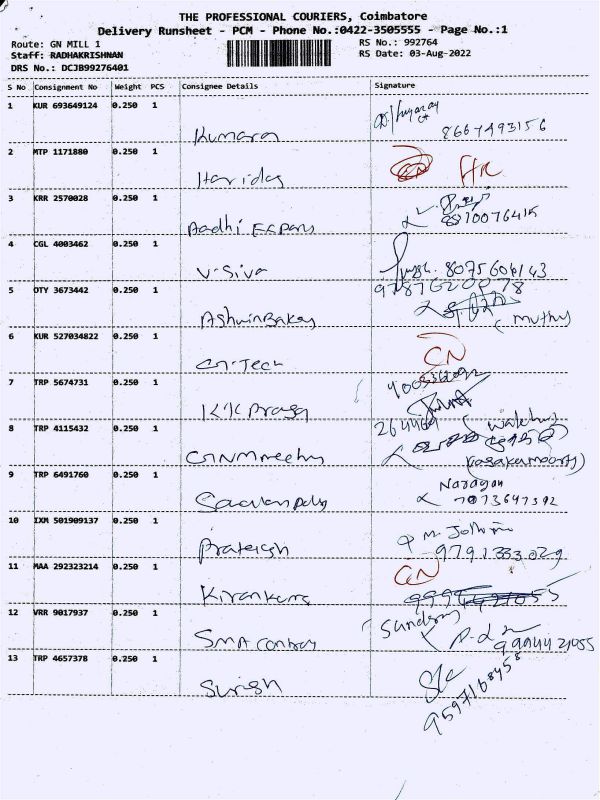 THE PROFESSIONAL COURIERS, Coimbatore
Delivery Runsheet - PCM - Phone No.:0422-3505555 - Page No.:1
Route: GN MILL 1 RS No.: 992764
Staff: RADHAKRISHNAN RS Date: 03-Aug-2022
DRS No.: DCJB99276401
S No Consignment No Weight PCS Consignee Details Signature
1 KUR 693649124 0.250 1
Kumaran 8667493156
2 MTP 1171880 0.250 1
Haridas
3 KRR 2570028 0.250 1
Aadhi Exports
4 CGL 4003462 0.250 1
V-Siva 8075606143
5 OTY 3673442 0.250 1 9787620078
Ashwin Bakery (Muthu
6 KUR 527034822 0.250 1
GN-Tech CN
7 TRP 5674731 0.250 1
KK Prasa
8 TRP 4115432 0.250 1 264469
9 TRP 6491760 0.250 1 Narayan
10 IXM 501909137 0.250 1
Prateish 9791333029
11 MAA 292323214 0.250 1 CN
Kirankumar
12 VRR 9017937 0.250 1
SMA 9994421055
13 TRP 4657378 0.250 1
Surish 9597168458